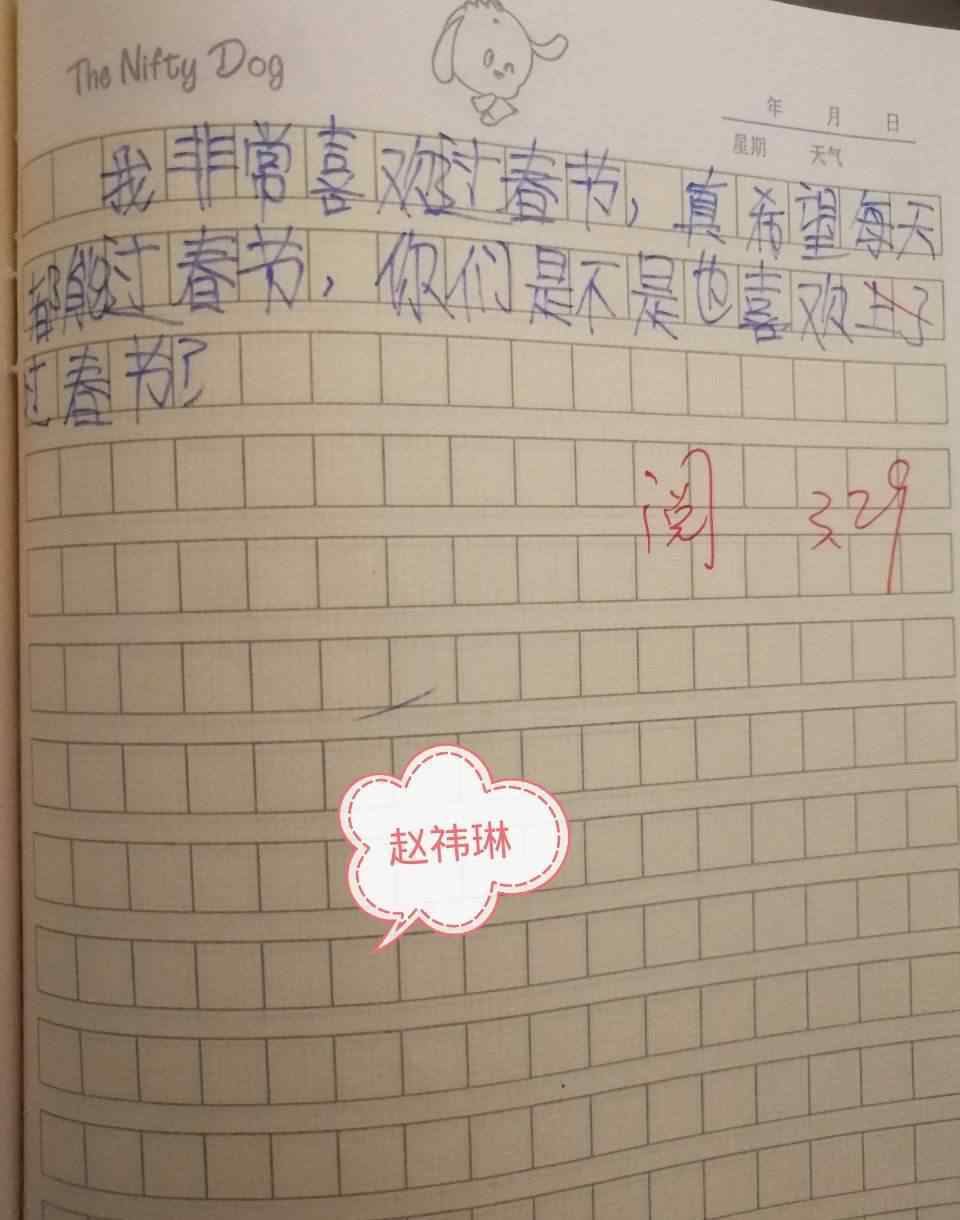 The Nifty Dog
年 月 日
星期 天气
我非常喜欢过春节，真希望每天
都能过春节，你们是不是也喜欢
过春节？
阅 3.29
赵祎琳